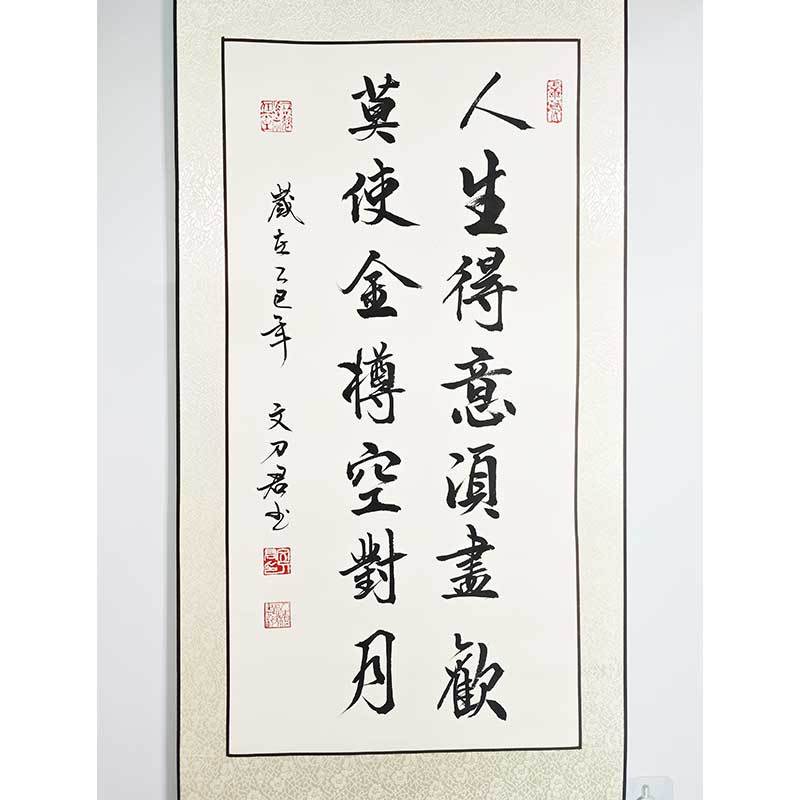 人生得意須盡歡
莫使金樽空對月
歲在乙巳年 文刀君书